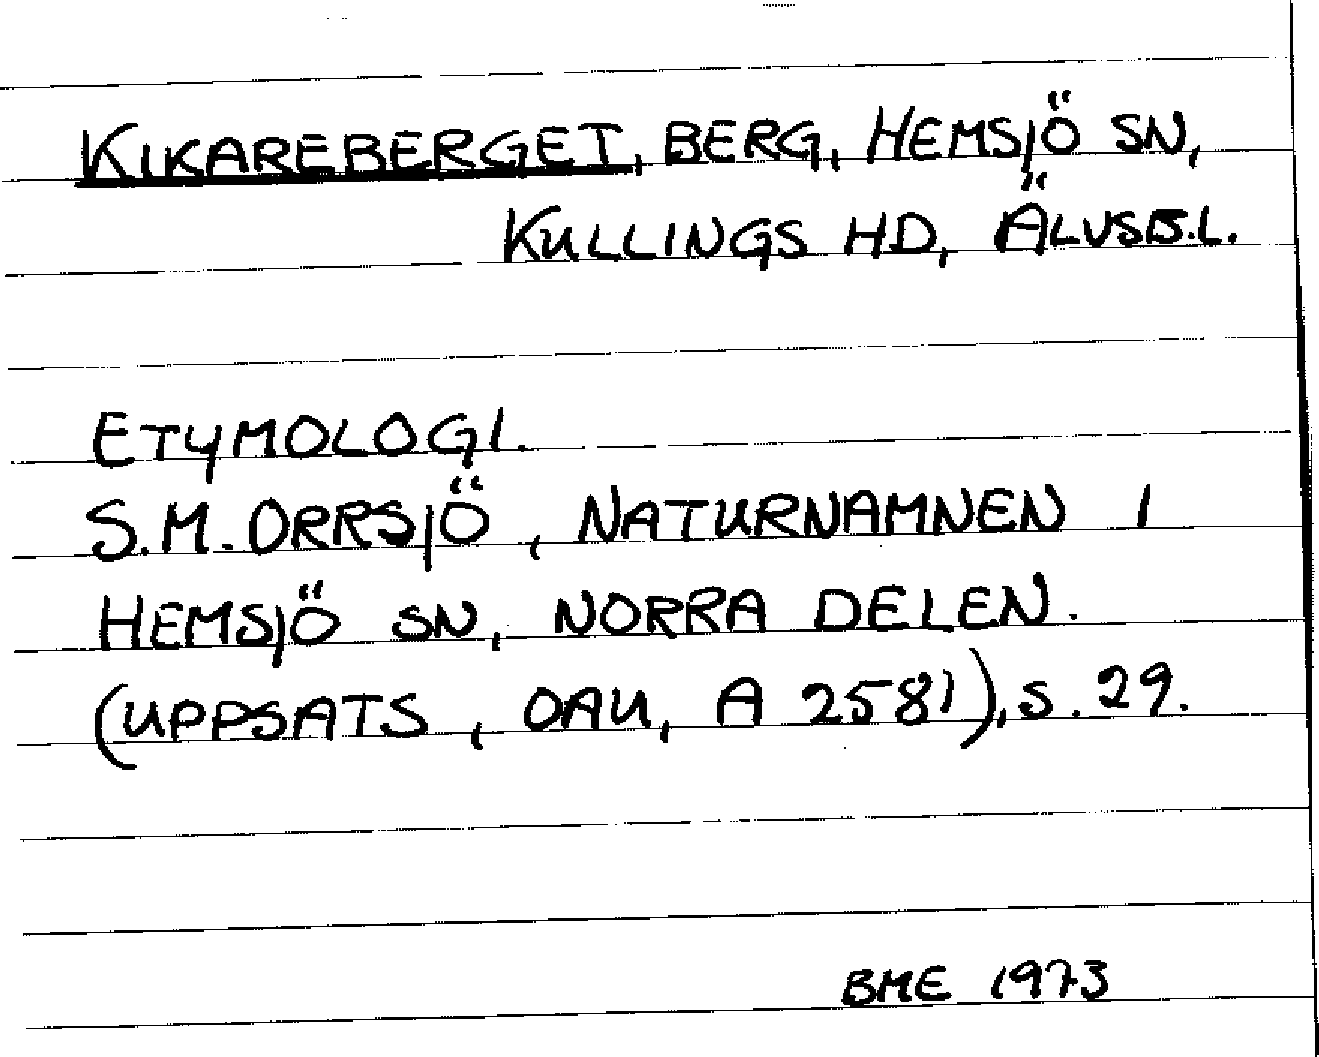 KIKAREBERGET, BERG, HEMSJÖ SN,
KULLINGS HD, ÄLVSB.L.
ETYMOLOGI.
S.M. ORRSJÖ, NATURNAMNEN I
HEMSJÖ SN, NORRA DELEN.
(UPPSATS, OAU, A 2581), S. 29.
BME 1973